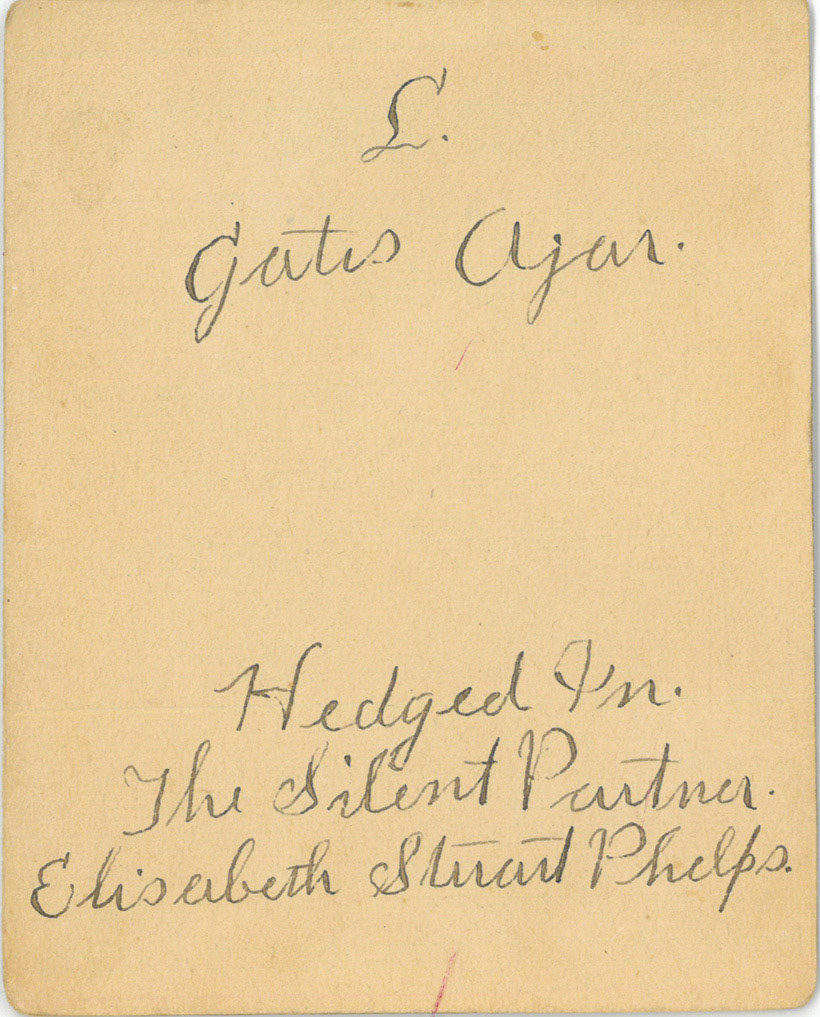 L.
Gates Ajar.
Hedged In.
The Silent Partner.
Elisabeth Stuart Phelps.